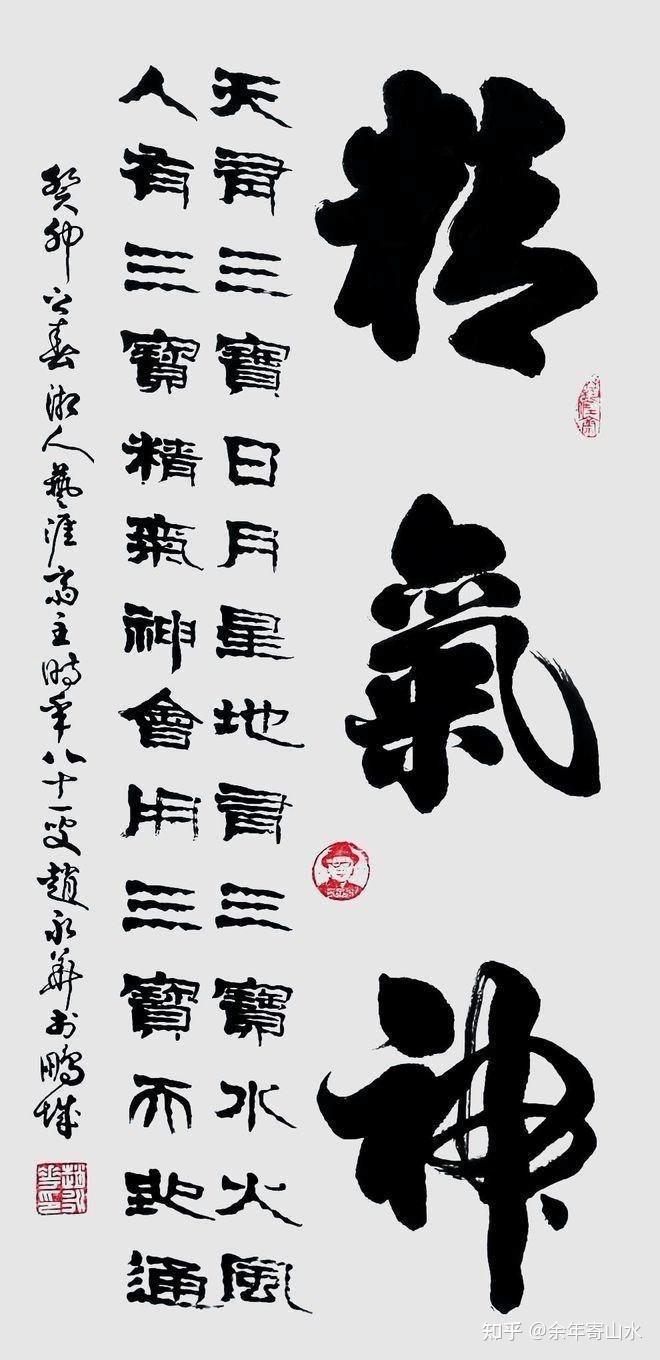 精氣神
天有三寶日月星地有三寶水火風
人有三寶精氣神會用三寶天地通
癸卯之春湘人藝涯齋主時年八十一叟趙永華书於鵬城
知乎 @余年寄山水